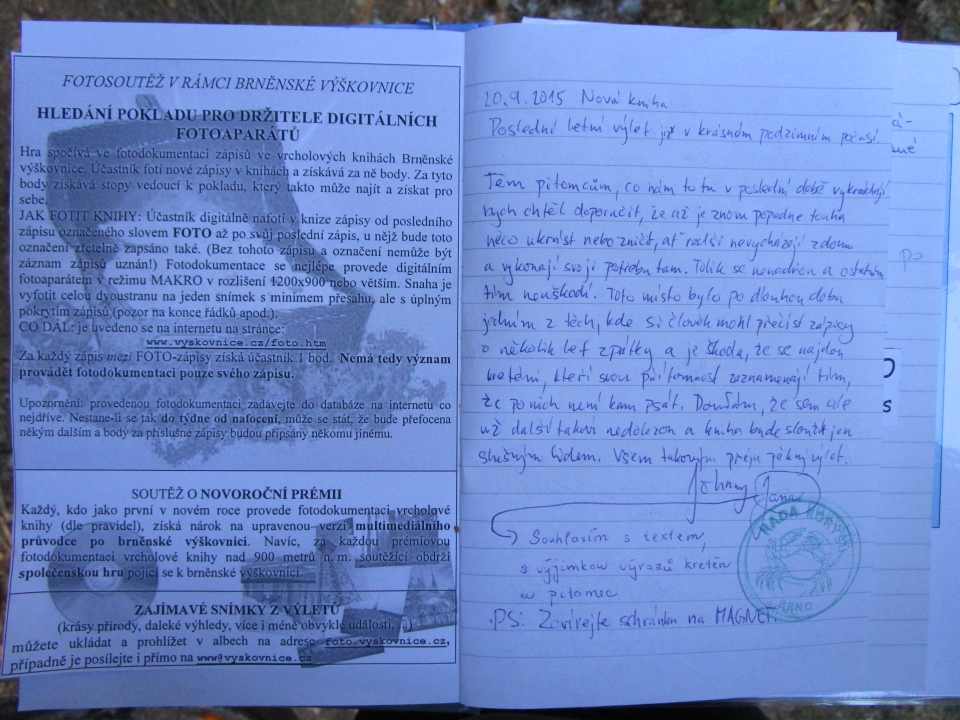 FOTOSOUTĚŽ V RÁMCI BRNĚNSKÉ VÝŠKOVNICE
HLEDÁNÍ POKLADU PRO DRŽITELE DIGITÁLNÍCH
FOTOAPARÁTŮ
Hra spočívá ve fotodokumentaci zápisů ve vrcholových knihách Brněnské
výškovnice. Účastník fotí nové zápisy v knihách a získává za ně body. Za tyto
body získává stopy vedoucí k pokladu, který takto může najít a získat pro
sebe.
JAK FOTIT KNIHY: Účastník digitálně nafotí v knize zápisy od posledního
zápisu označeného slovem FOTO až po svůj poslední zápis, u nějž bude toto
označení zřetelně zapsáno také. (Bez tohoto zápisu a označení nemůže být
záznam zápisů uznán!) Fotodokumentace se nejlépe provede digitálním
fotoaparátem v režimu MAKRO v rozlišení 1200x900 nebo větším. Snaha je
vyfotit celou dvoustranu na jeden snímek s minimem přesahu, ale s úplným
pokrytím zápisů (pozor na konce řádků apod.).
CO DÁL: je uvedeno se na internetu na stránce:
www.vyskovnice.cz/foto.htm
Za každý zápis mezi FOTO-zápisy získá účastník 1 bod. Nemá tedy význam
provádět fotodokumentaci pouze svého zápisu.
Upozornění: provedenou fotodokumentaci zadávejte do databáze na internetu co
nejdříve. Nestane-li se tak do týdne od nafocení, může se stát, že bude přefocena
někým dalším a body za příslušné zápisy budou připsány někomu jinému.
SOUTĚŽ O NOVOROČNÍ PRÉMII
Každý, kdo jako první v novém roce provede fotodokumentaci vrcholové
knihy (dle pravidel), získá nárok na upravenou verzi multimediálního
průvodce po brněnské výškovnici. Navíc, za každou prémiovou
fotodokumentaci vrcholové knihy nad 900 metrů n. m. soutěžící obdrží
společenskou hru pojící se k brněnské výškovnici.
ZAJÍMAVÉ SNÍMKY Z VÝLETŮ
(krásy přírody, daleké výhledy, více i méně obvyklé události, )
můžete ukládat a prohlížet v albech na adrese foto.vyskovnice.cz,
případně je posílejte i přímo na www@vyskovnice.cz
20.9.2015 Nová kniha
Poslední letní výlet již v krásném podzimním počasí.
Těm pitomcům, co nám to tu v poslední době vykrádají
bych chtěl doporučit, že až je znovu popadne touha
něco ukrást nebo zničit, ať radši nevycházejí z domu
a vykonají svoji potřebu tam. Tolik se nenadřou a ostatním
tím neuškodí. Toto místo bylo po dlouhou dobu
jedním z těch, kde si člověk mohl přečíst zápisy
o několik let zpátky a je škoda, že se najdou
kreténi, kteří svou přítomnost zaznamenají tím,
že po nich není kam psát. Doufám, že sem ale
už další takoví nedolezou a kniha bude sloužit jen
slušným lidem. Všem takovým přeju pěkný výlet.
Johnny Jana
Souhlasím s textem,
s výjimkou výrazů kretén
a pitomec
PS: Zavírejte schránku na MAGNET.
RADA
BRNO
po